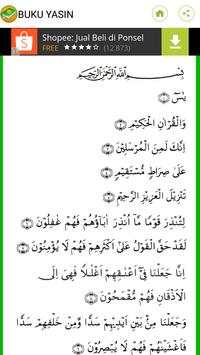 BUKU YASIN
Shopee: Jual Beli di Ponsel
FREE ★★★★☆ (12 873)
بِسْمِ اللَّهِ الرَّحْمَٰنِ الرَّحِيمِ
يسٓ ۝١
وَالْقُرْآنِ الْحَكِيمِ ۝٢
إِنَّكَ لَمِنَ الْمُرْسَلِينَ ۝٣
عَلَىٰ صِرَاطٍ مُسْتَقِيمٍ ۝٤
تَنْزِيلَ الْعَزِيزِ الرَّحِيمِ ۝٥
لِتُنْذِرَ قَوْمًا مَا أُنْذِرَ آبَاؤُهُمْ فَهُمْ غَافِلُونَ ۝٦
لَقَدْ حَقَّ الْقَوْلُ عَلَىٰ أَكْثَرِهِمْ فَهُمْ لَا يُؤْمِنُونَ ۝٧
إِنَّا جَعَلْنَا فِي أَعْنَاقِهِمْ أَغْلَالًا فَهِيَ إِلَى
الْأَذْقَانِ فَهُمْ مُقْمَحُونَ ۝٨
وَجَعَلْنَا مِنْ بَيْنِ أَيْدِيهِمْ سَدًّا وَمِنْ خَلْفِهِمْ سَدًّا
فَأَغْشَيْنَاهُمْ فَهُمْ لَا يُبْصِرُونَ ۝٩